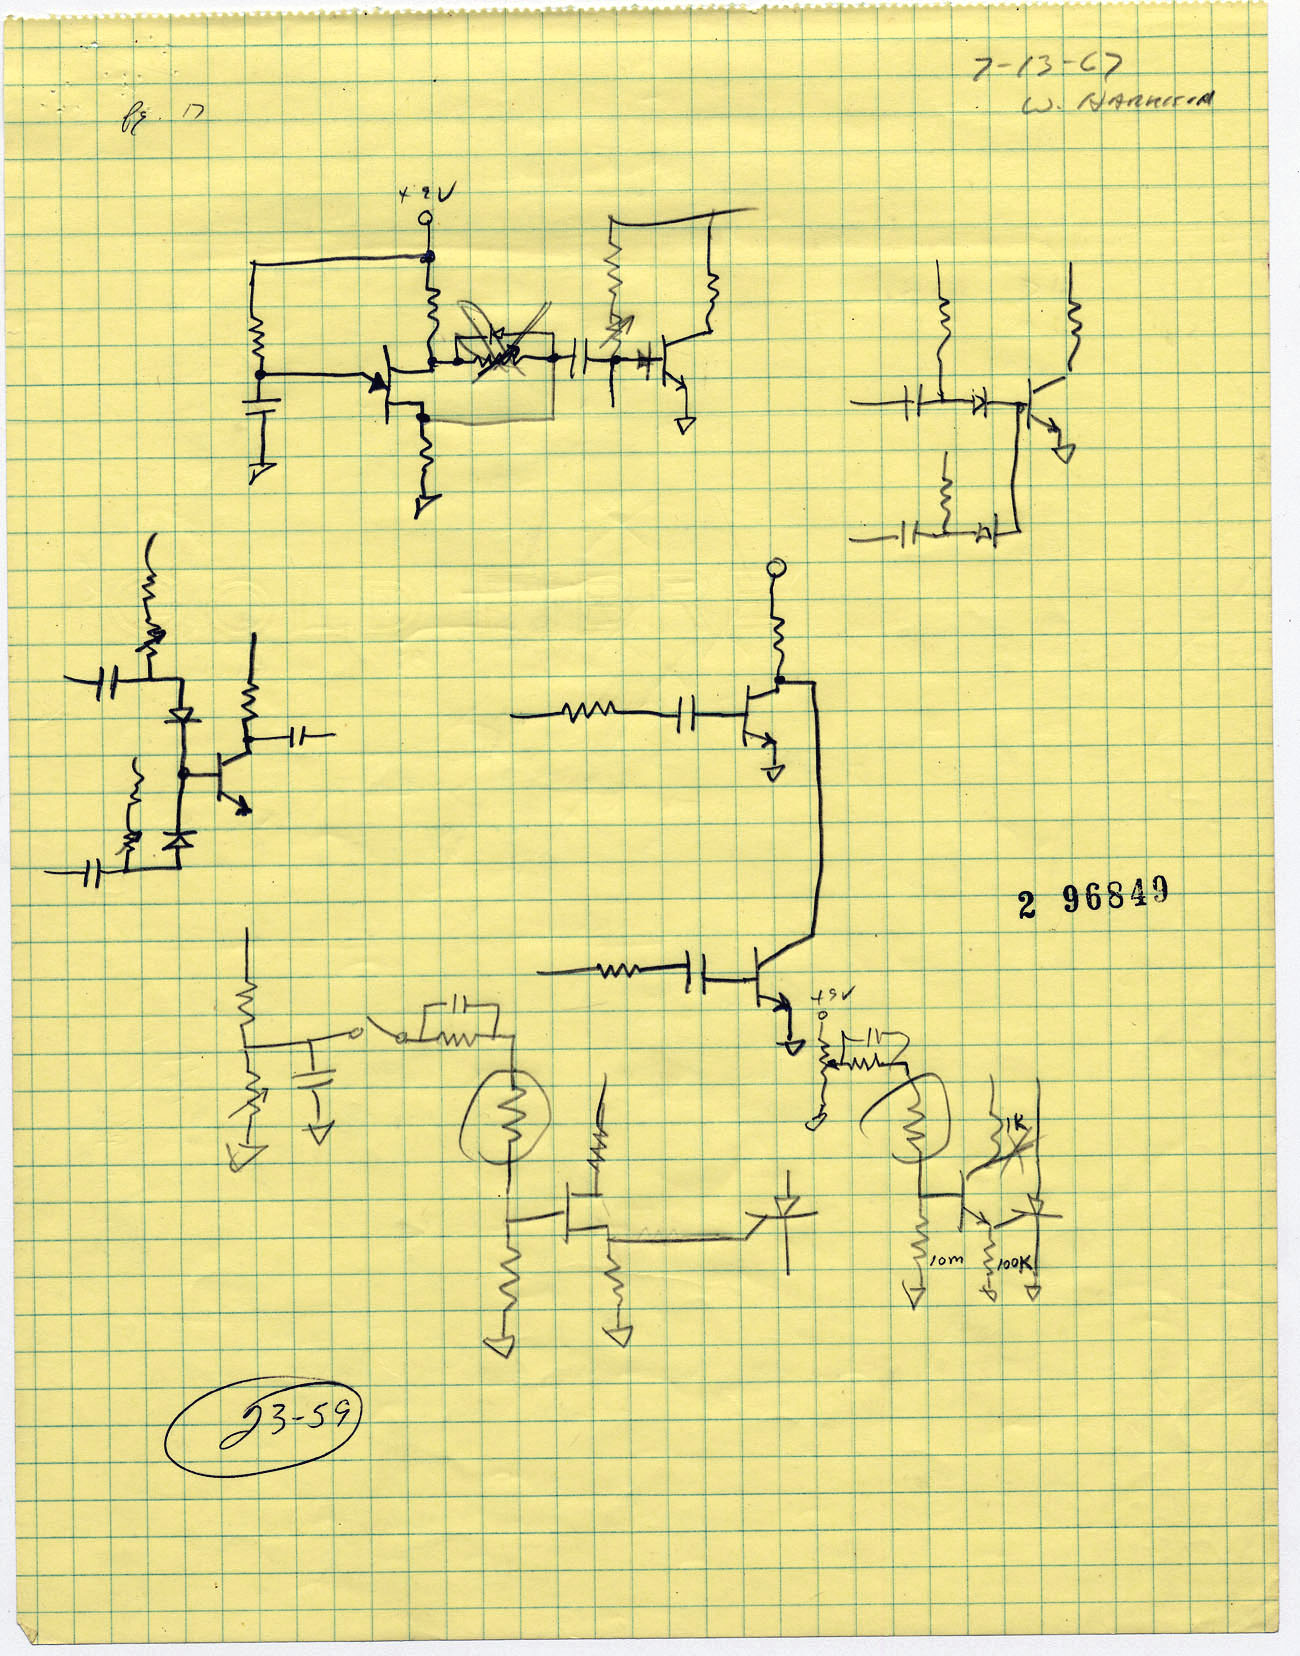 7-13-67
W.
pg. 17
+9V
2 96849
+9V
1K
10m
100K
23-59